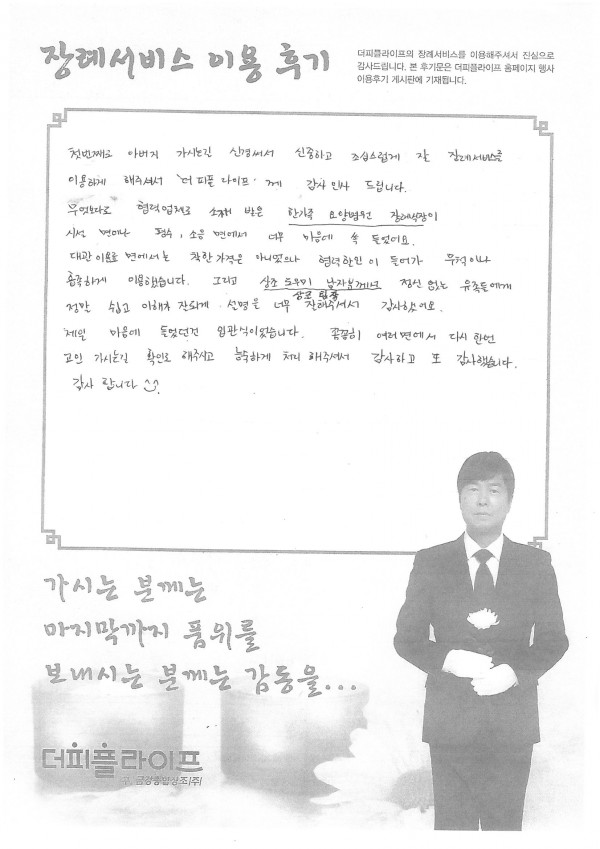 장례서비스 이용 후기
더피플라이프의 장례서비스를 이용해주셔서 진심으로
감사드립니다. 본 후기문은 더피플라이프 홈페이지 행사
이용후기 게시판에 기재됩니다.
첫번째로 아버지 가시는길 신경써서 신중하고 조심스럽게 잘 장례서비스를
이용하게 해주셔서 '더 피플 라이프' 께 감사 인사 드립니다.
무엇보다로 협력업체로 소개 받은 한가족 요양병원 장례식장이
시설 면이나 평수, 소음 면에서 너무 마음에 쏙 들었어요.
대관 이용료 면에서는 착한 가격은 아니었으나 협력할인이 들어가 무척이나
흡족하게 이용했습니다. 그리고 상조 도우미 남자분께서 정신 없는 유족들에게
상조 팀장
정말 쉽고 이해가 잘되게 설명을 너무 잘해주셔서 감사했어요.
제일 마음에 들었던건 입관식이었습니다. 꼼꼼히 여러면에서 다시 한번
고인 가시는길 확인도 해주시고 능수하게 처리 해주셔서 감사하고 또 감사했습니다.
감사 합니다
가시는 분께는
마지막까지 품위를
보내시는 분께는 감동을...
더피플라이프
구. 금강종합상조(주)